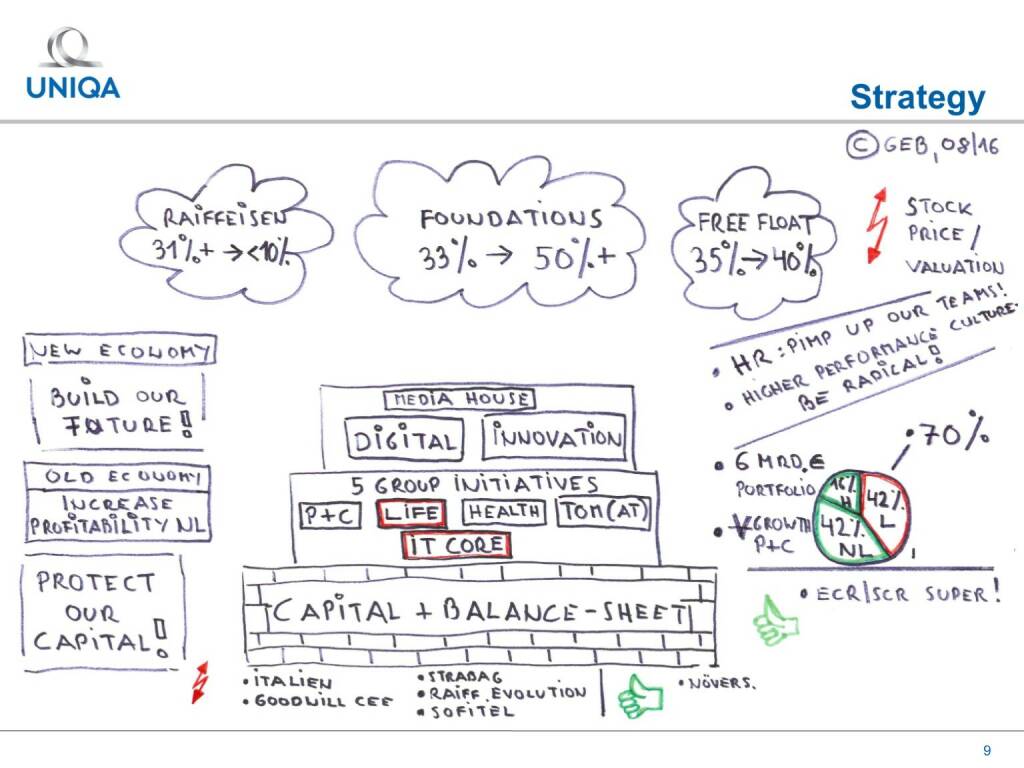 UNIQA
Strategy
© GEB, 08/16
RAIFFEISEN
31%+ → <10%
FOUNDATIONS
33% → 50%+
FREE FLOAT
35% → 40%
STOCK
PRICE/
VALUATION
• HR: PIMP UP OUR TEAMS!
• HIGHER PERFORMANCE CULTURE.
BE RADICAL!
NEW ECONOMY
BUILD OUR
FUTURE!
OLD ECONOMY
INCREASE
PROFITABILITY NL
PROTECT
OUR
CAPITAL!
MEDIA HOUSE
DIGITAL
INNOVATION
5 GROUP INITIATIVES
P+C
LIFE
HEALTH
TOM(AT)
IT CORE
CAPITAL + BALANCE-SHEET
• 6 MRD.€
PORTFOLIO
• GROWTH
P+C
:70%
16%
H
42%
L
42%
NL
• ECR/SCR SUPER!
• ITALIEN
• GOODWILL CEE
• STRABAG
• RAIFF. EVOLUTION
• SOFITEL
• NÖVERS.
9